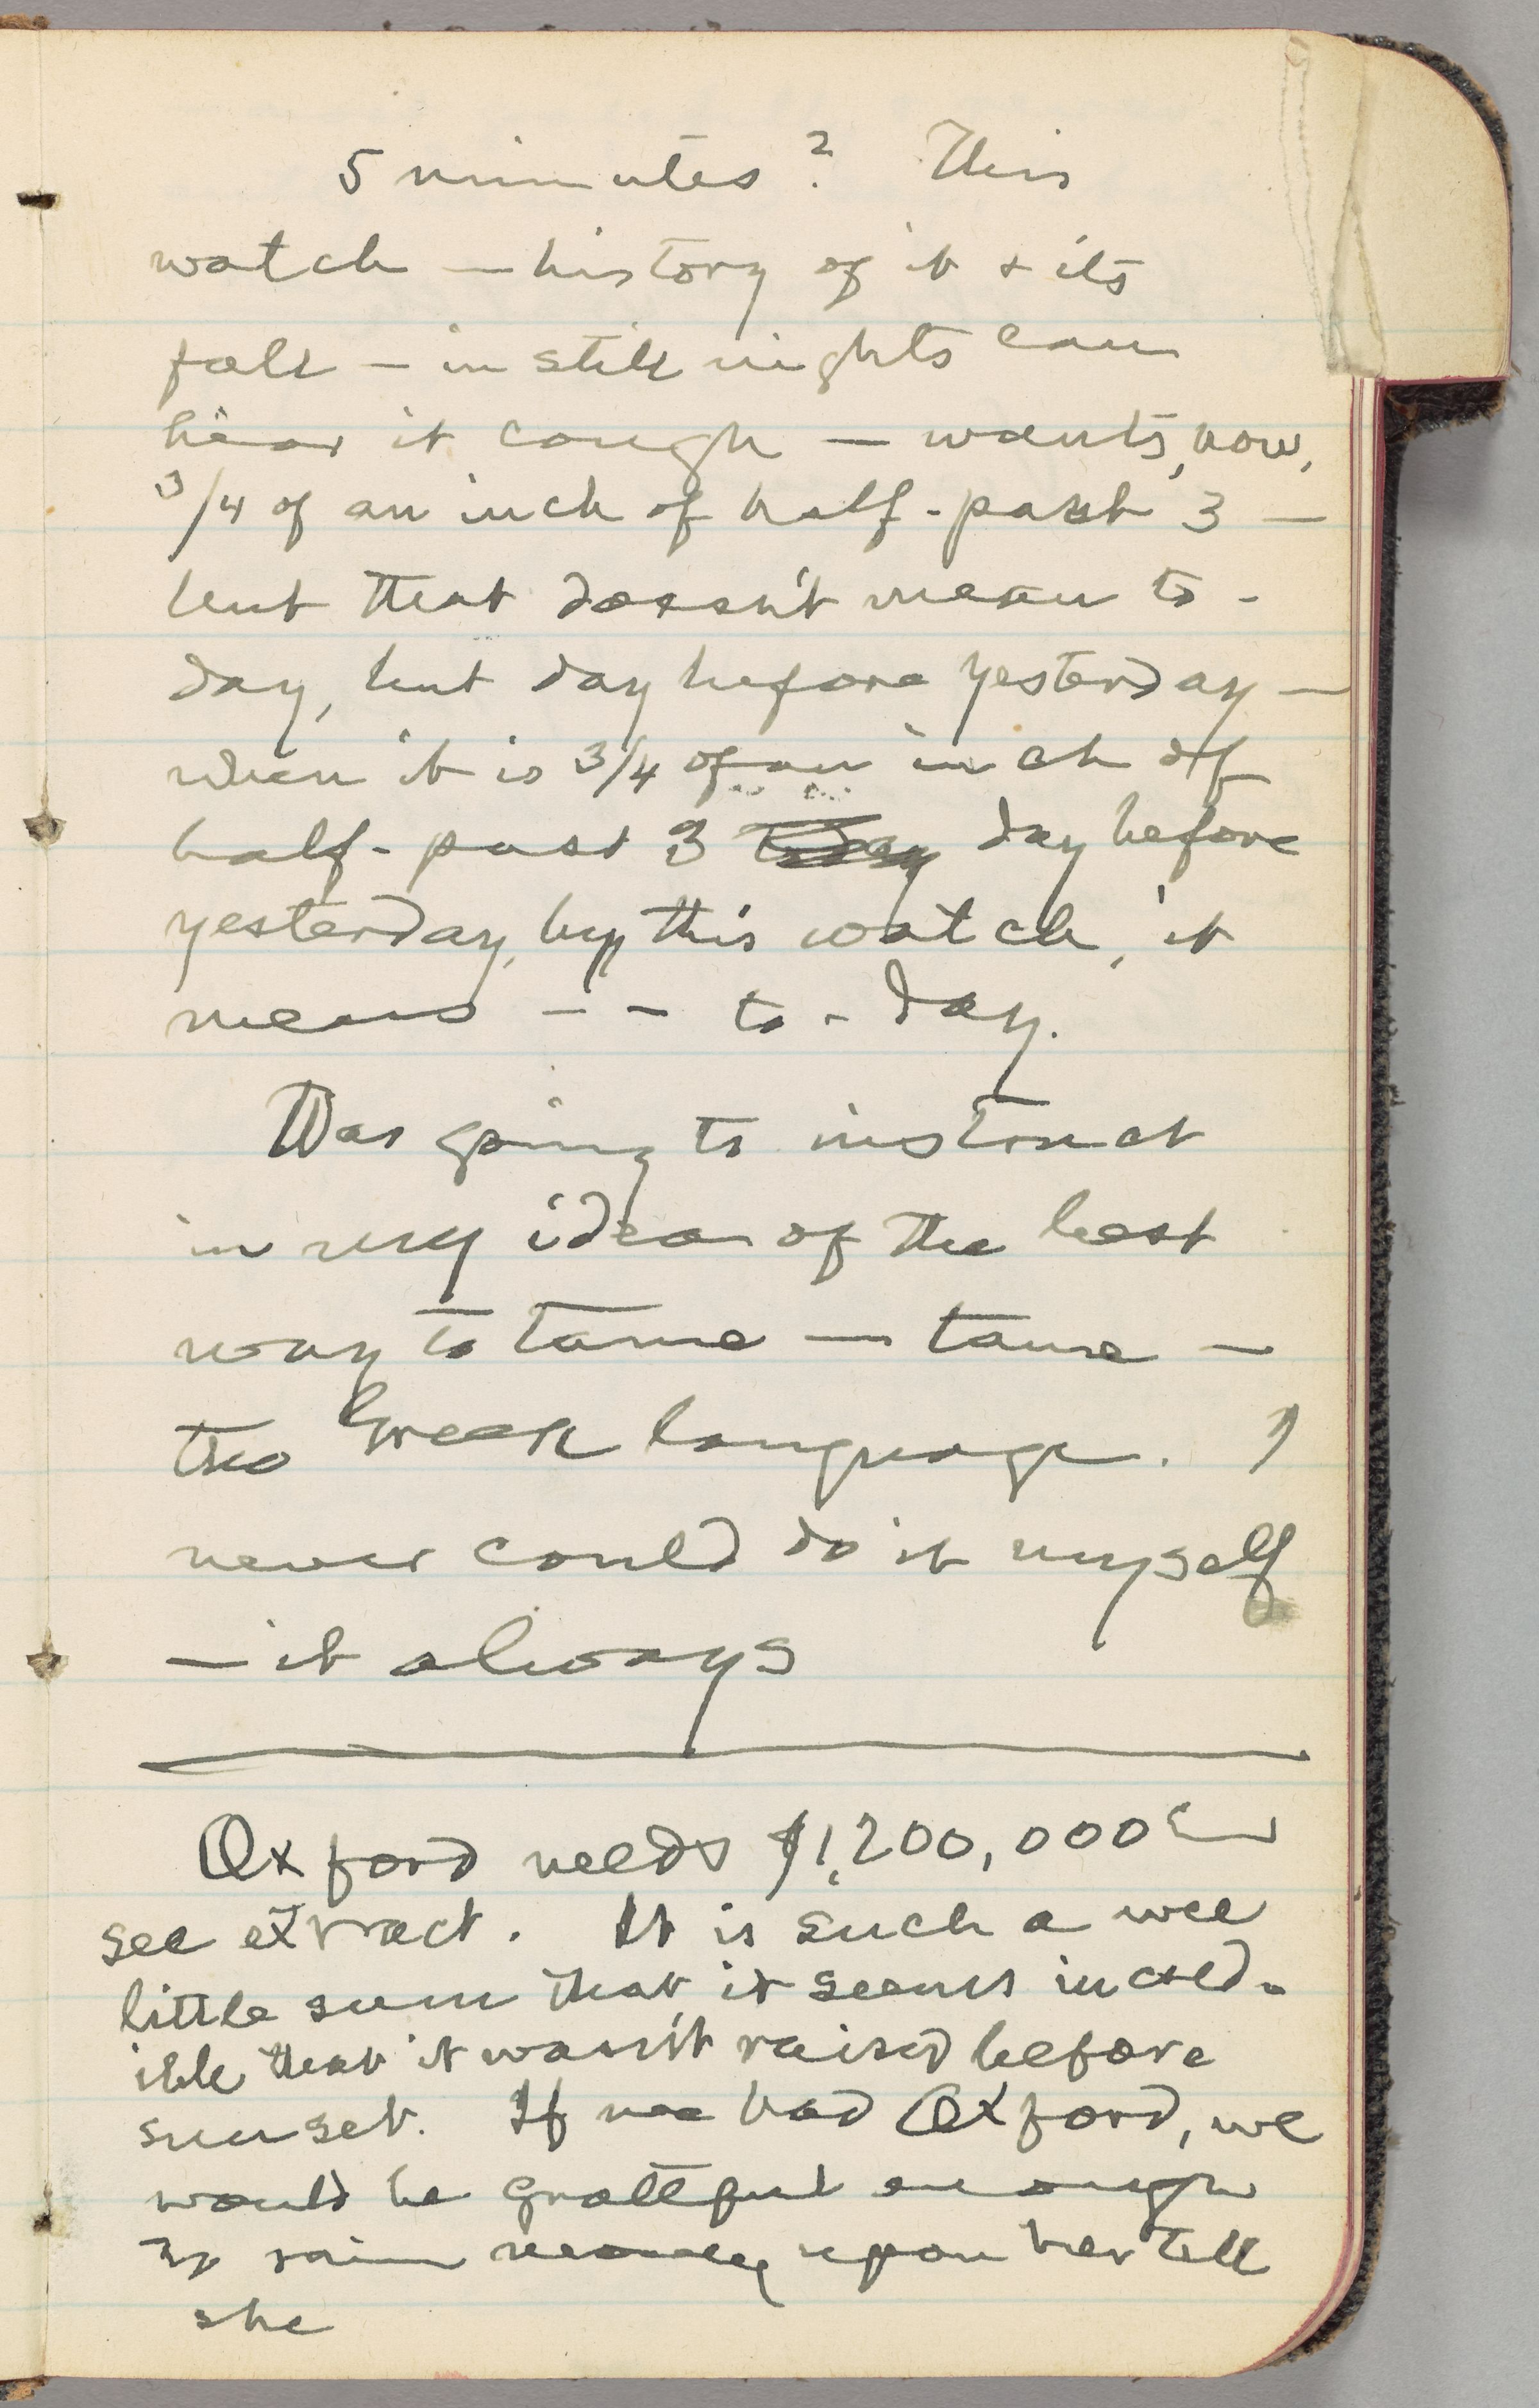 5 minutes? This
watch — history of it & its
fall — in still nights can
hear it cough — wants, now,
3/4 of an inch of half-past 3 —
but that doesn't mean to-
day, but day before yesterday —
when it is 3/4 of an inch of
half-past 3 today day before
yesterday, by this watch, it
means - - to-day.
Was going to instruct
in my idea of the best
way to tame — tame —
the Greek language. I
never could do it myself
— it always
Oxford needs $1,200,000
see extract. It is such a wee
little sum that it seems incred-
ible that it wasn't raised before
sunset. If we had Oxford, we
would be grateful enough
to rain money upon her till
she